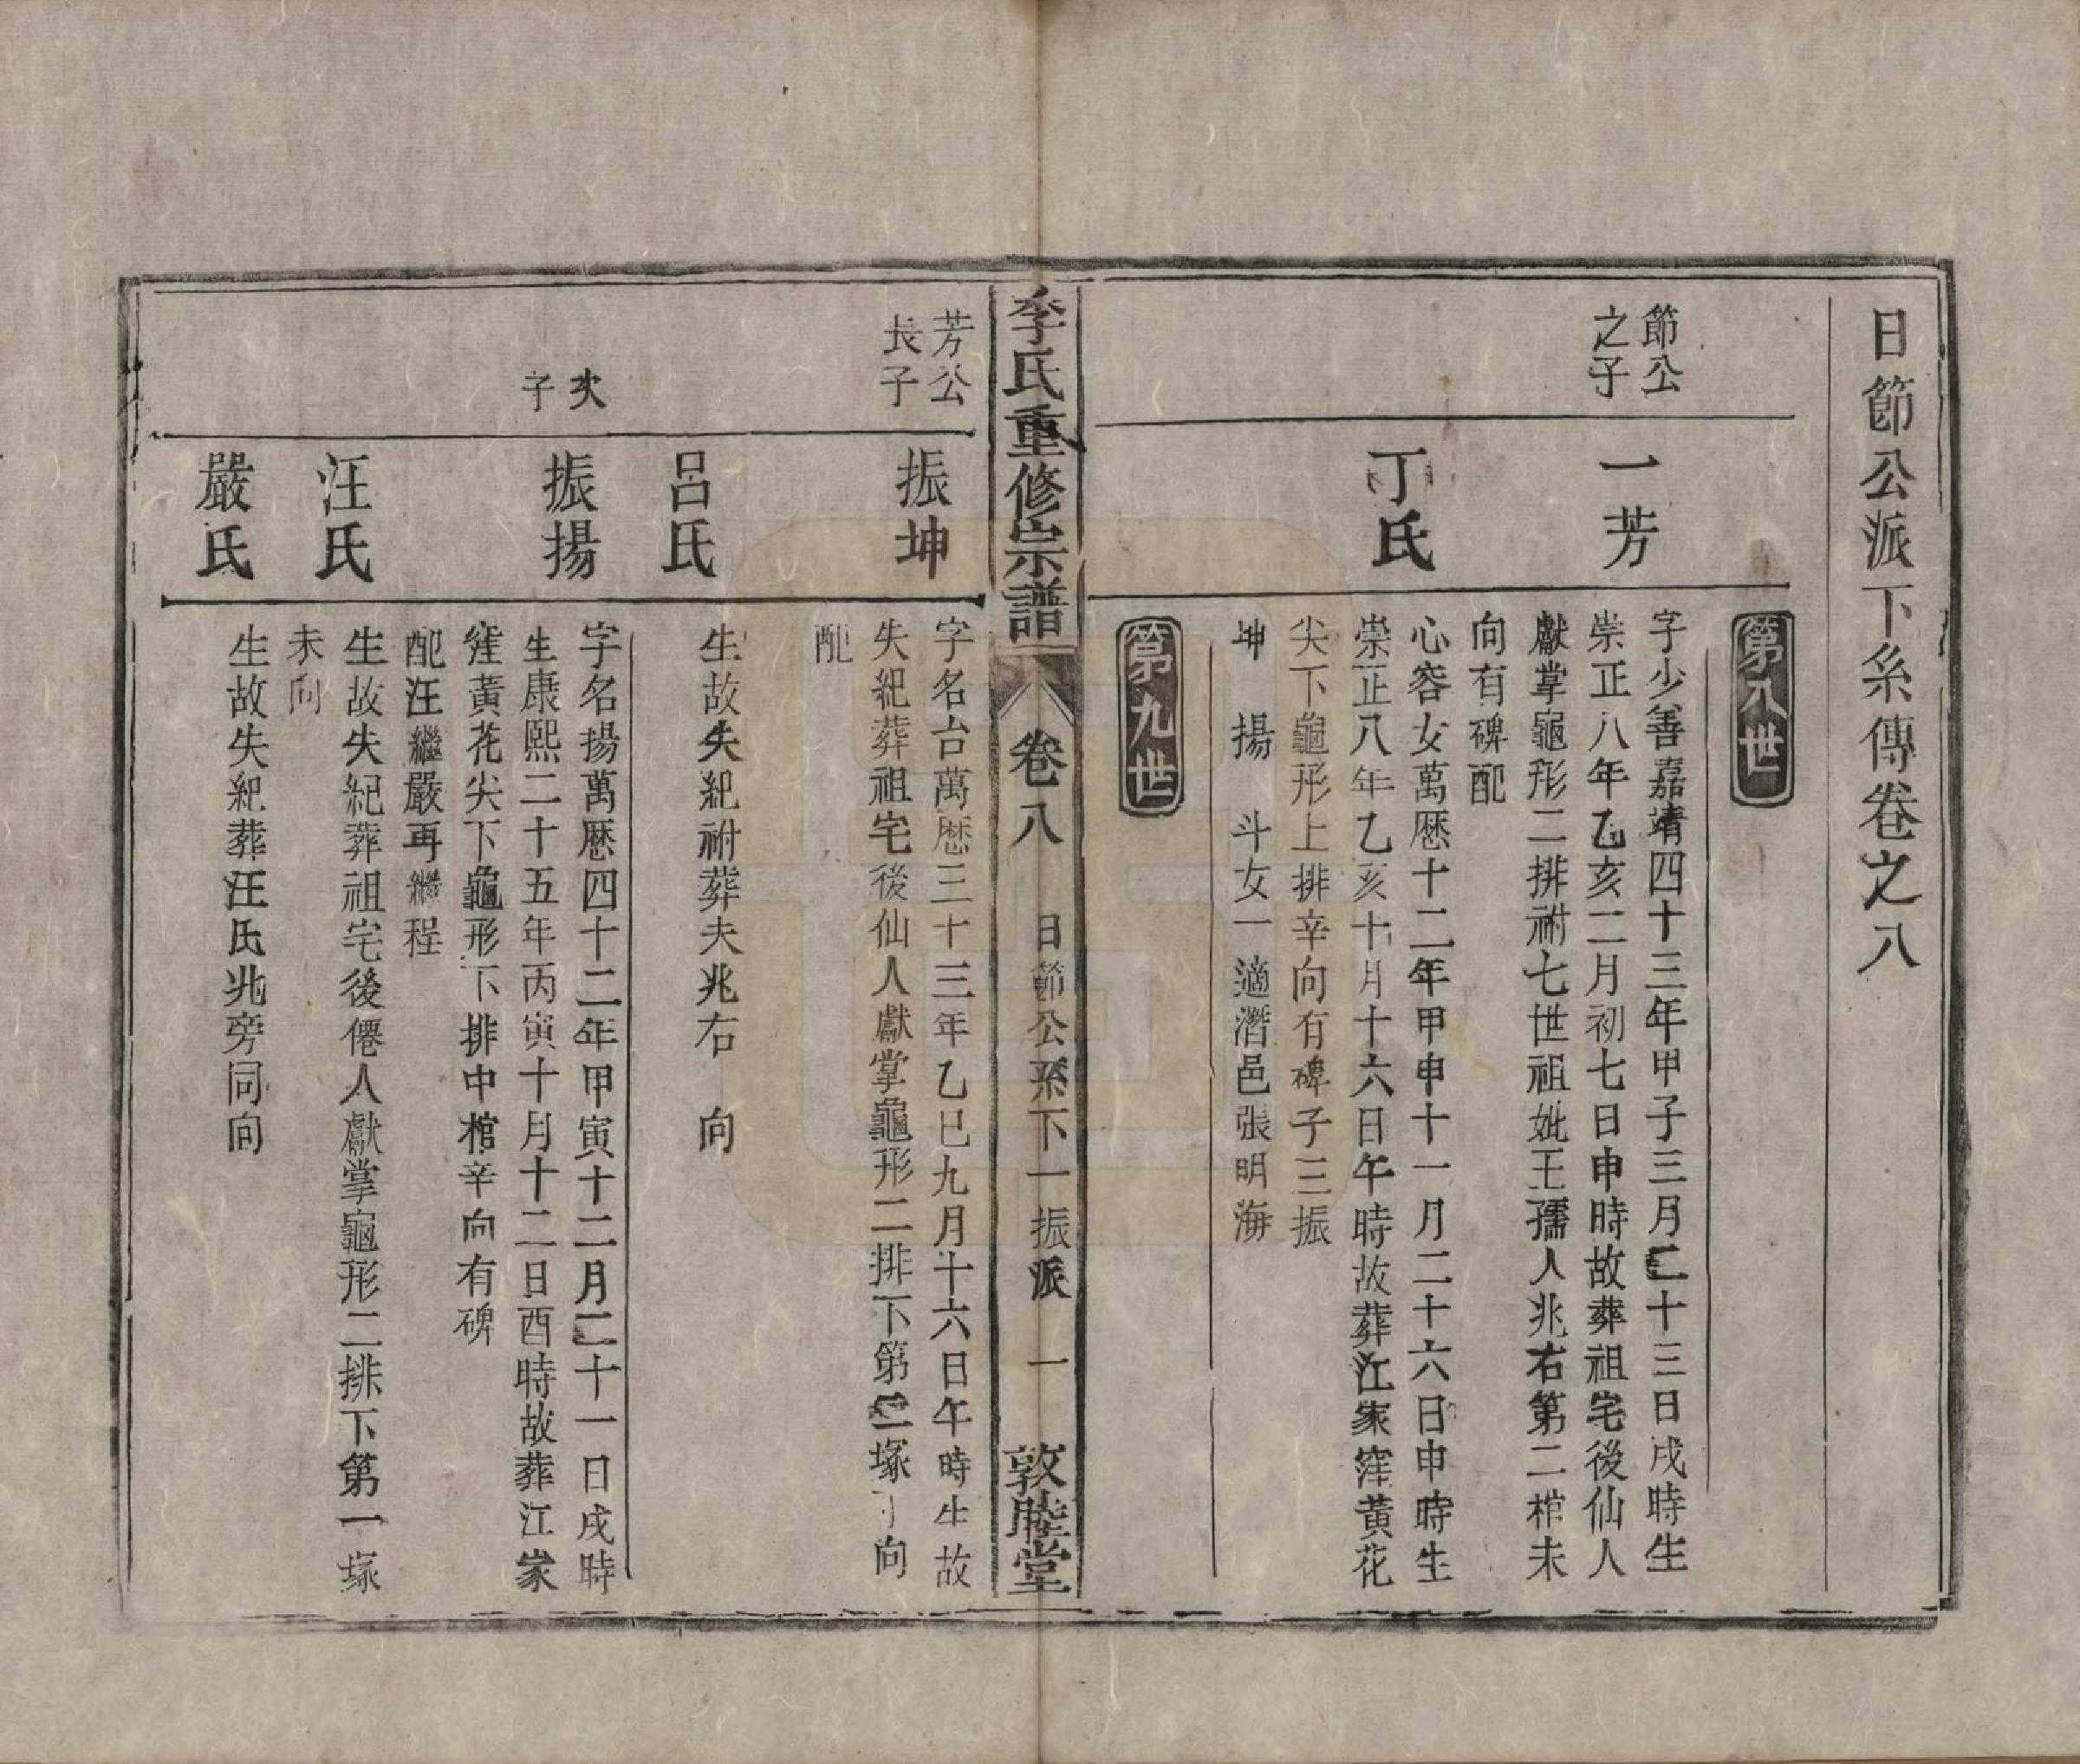 日節公派下系傳卷之八
第八世
節公
之子
一芳
字少善嘉靖四十三年甲子三月二十三日戌時生
崇正八年乙亥二月初七日申時故葬祖宅後仙人
獻掌龜形二排祔七世祖妣王孺人兆右第二棺未
向有碑配
丁氏
心容女萬厯十二年甲申十一月二十六日申時生
崇正八年乙亥十月十六日午時故葬江家窪黃花
尖下龜形上排辛向有碑子三振
坤　揚　斗女一適潛邑張明海
第九世
李氏重修宗譜
卷八　日節公系下一振派　一
敦睦堂
芳公
長子
振坤
字名台萬厯三十三年乙巳九月十六日午時生故
失紀葬祖宅後仙人獻掌龜形二排下第二塚丁向
配
呂氏
生故失紀祔葬夫兆右　向
次
子
振揚
字名揚萬厯四十二年甲寅十二月二十一日戌時
生康熙二十五年丙寅十月十二日酉時故葬江家
窪黃花尖下龜形下排中棺辛向有碑
配汪繼嚴再繼程
汪氏
生故失紀葬祖宅後僊人獻掌龜形二排下第一塚
未向
嚴氏
生故失紀葬汪氏兆旁同向